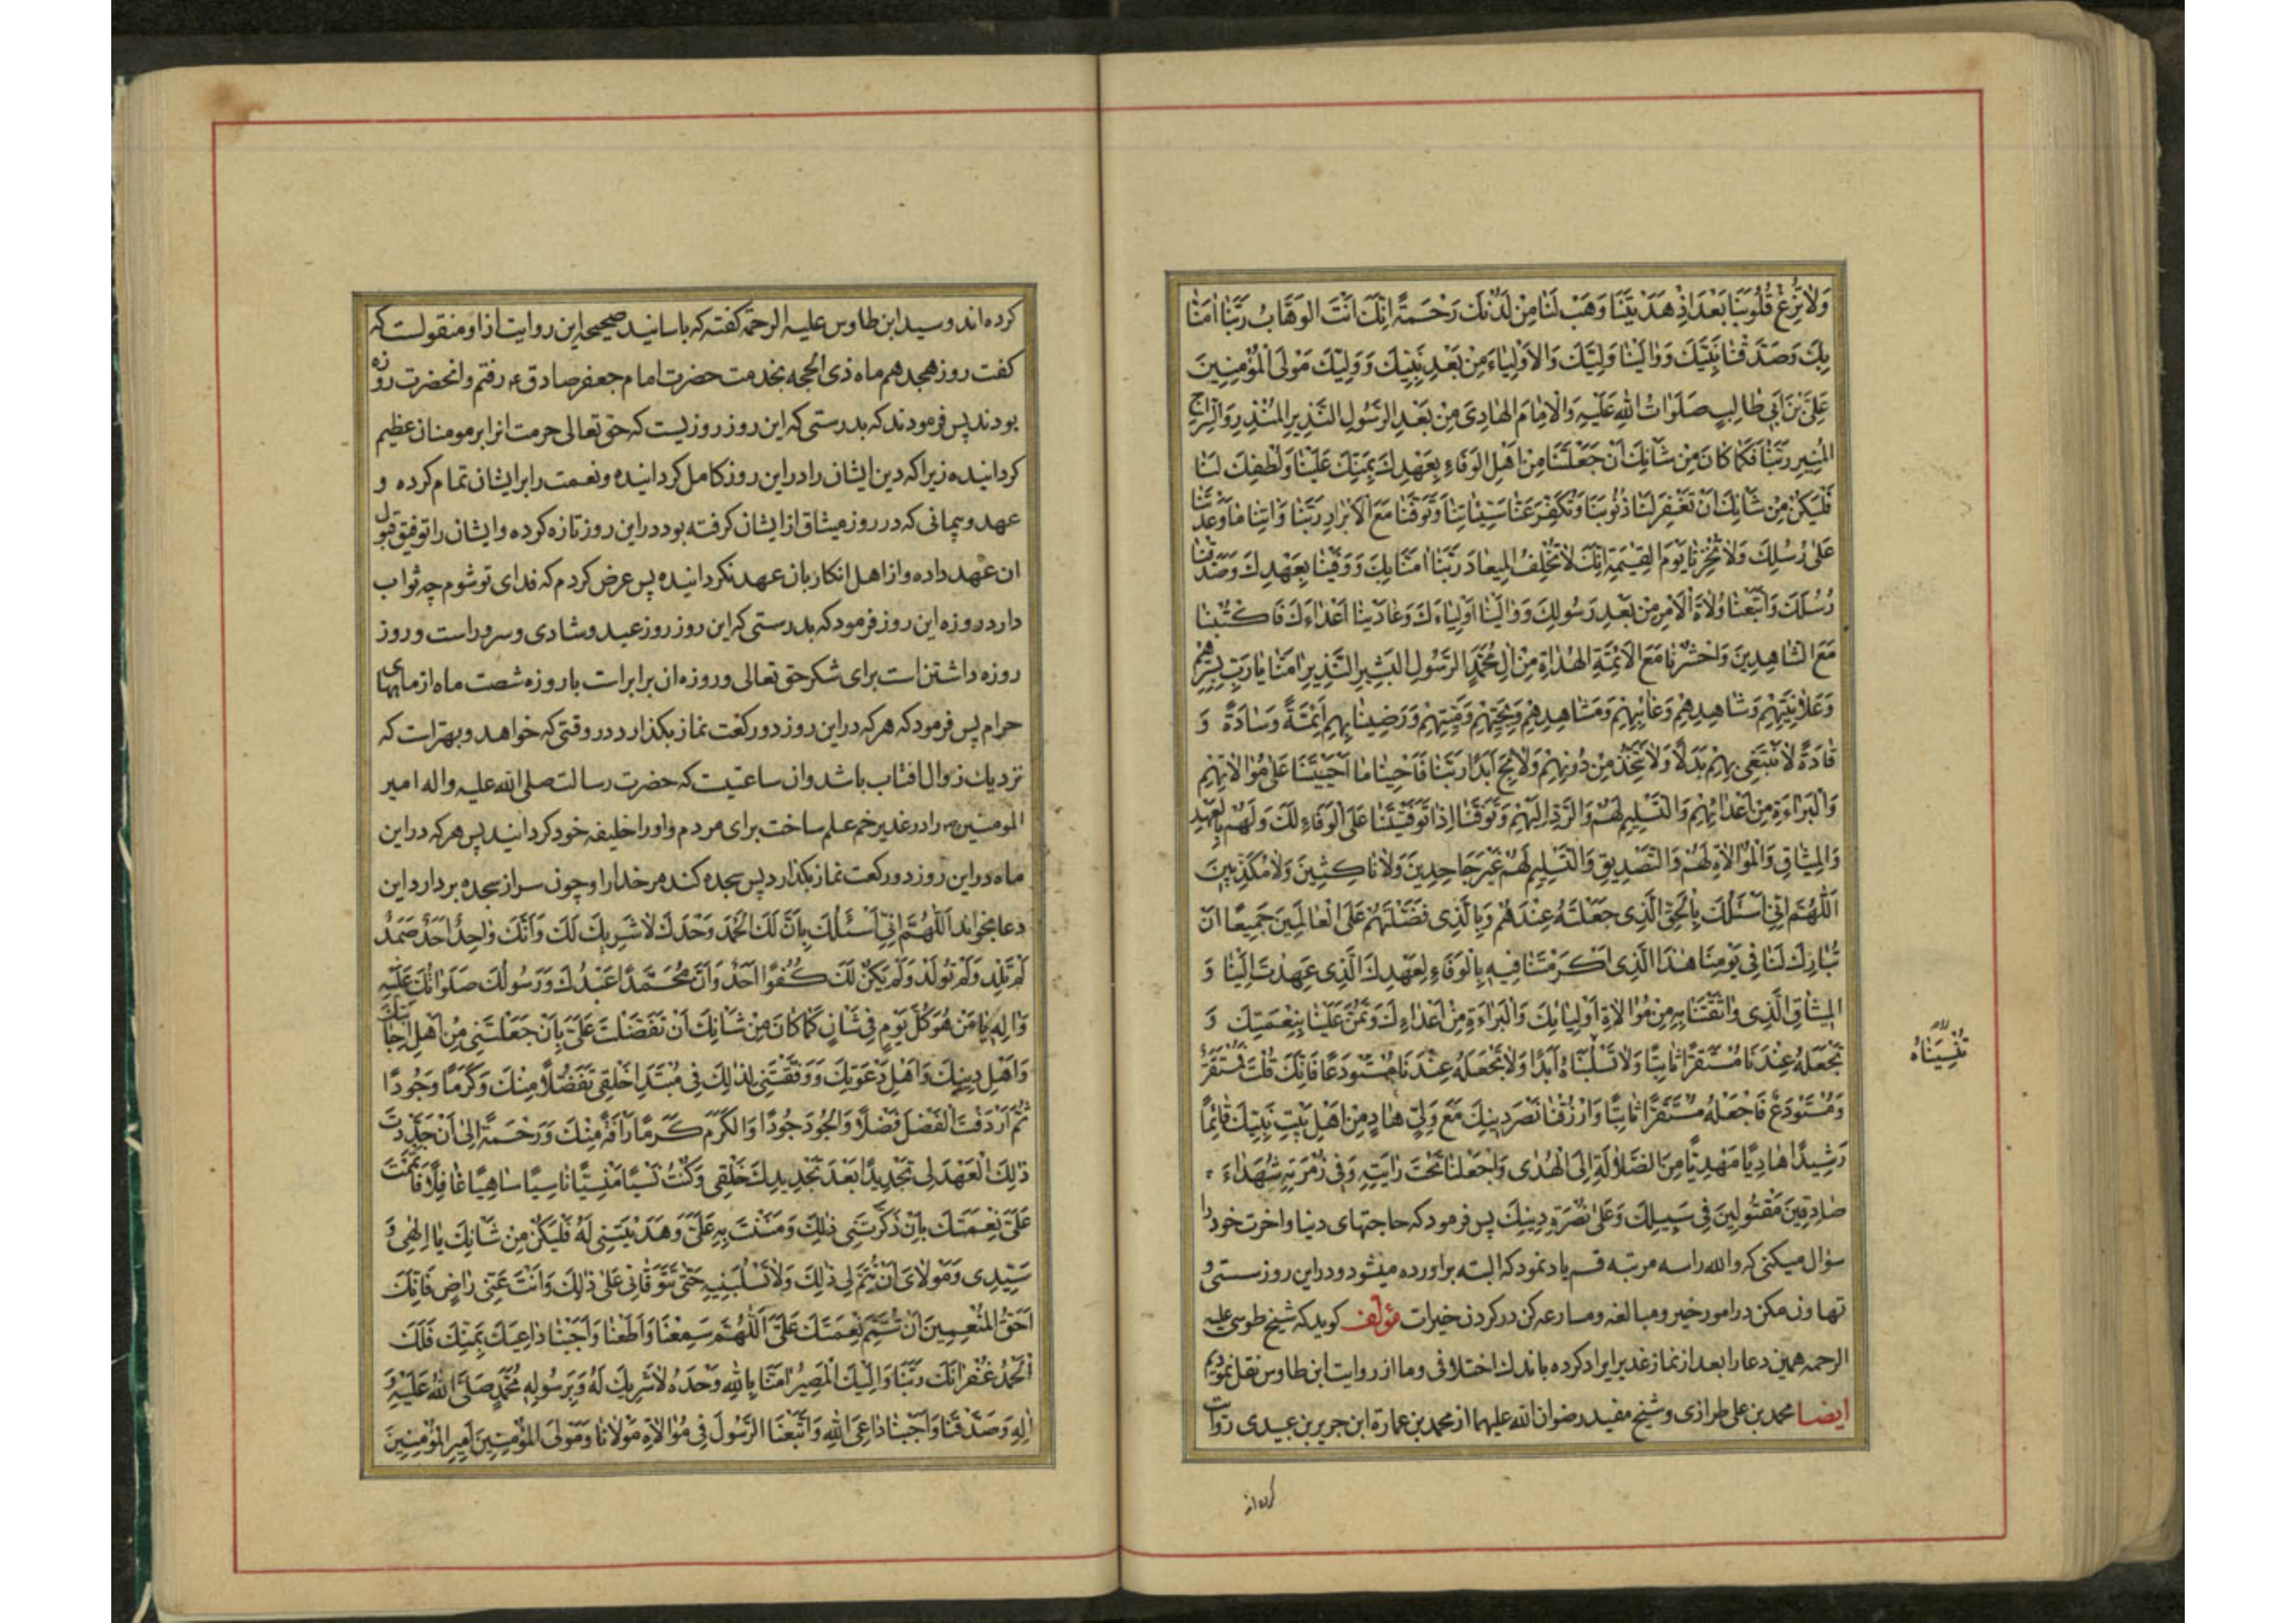 وَلَا تُزِغْ قُلُوبَنَا بَعْدَ اِذْ هَدَيْتَنَا وَهَبْ لَنَا مِنْ لَدُنْكَ رَحْمَةً اِنَّكَ اَنْتَ الوَهَّابُ رَبَّنَا اٰمَنَّا
بِكَ وَصَدَّقْنَا نَبِيَّكَ وَوَالَيْنَا وَلِيَّكَ وَالاَوْلِيَاءَ مِنْ بَعْدِ نَبِيِّكَ وَوَلِيَّكَ مَوْلَى الْمُؤْمِنِينَ
عَلِيَّ بْنَ اَبِي طَالِبٍ صَلَوَاتُ اللهِ عَلَيْهِ وَالاِمَامَ الهَادِيَ مِنْ بَعْدِ الرَّسُولِ النَّذِيرِ المُنْذِرِ وَالسِّرَاجِ
المُنِيرِ رَبَّنَا فَكَمَا كَانَ مِنْ شَأْنِكَ اَنْ جَعَلْتَنَا مِنْ اَهْلِ الوَفَاءِ بِعَهْدِكَ بِمَنِّكَ عَلَيْنَا وَلُطْفِكَ لَنَا
فَلْيَكُنْ مِنْ شَأْنِكَ اَنْ تَغْفِرَ لَنَا ذُنُوبَنَا وَتُكَفِّرَ عَنَّا سَيِّئَاتِنَا وَتَوَفَّنَا مَعَ الاَبْرَارِ رَبَّنَا وَاٰتِنَا مَا وَعَدْتَنَا
عَلَى رُسُلِكَ وَلَا تُخْزِنَا يَوْمَ القِيٰمَةِ اِنَّكَ لَا تُخْلِفُ المِيعَادَ رَبَّنَا اٰمَنَّا بِكَ وَوَفَيْنَا بِعَهْدِكَ وَصَدَّقْنَا
رُسُلَكَ وَاتَّبَعْنَا وُلَاةَ الْاَمْرِ مِنْ بَعْدِ رَسُولِكَ وَوَالَيْنَا اَوْلِيَاءَكَ وَعَادَيْنَا اَعْدَاءَكَ فَاكْتُبْنَا
مَعَ الشَّاهِدِينَ وَاحْشُرْنَا مَعَ الاَئِمَّةِ الهُدَاةِ مِنْ اٰلِ مُحَمَّدٍ الرَّسُولِ البَشِيرِ النَّذِيرِ اٰمَنَّا يَا رَبِّ بِسِرِّهِمْ
وَعَلَانِيَتِهِمْ وَشَاهِدِهِمْ وَغَائِبِهِمْ وَمَشَاهِدِهِمْ وَبِحَيِّهِمْ وَمَيِّتِهِمْ وَرَضِينَا بِهِمْ اَئِمَّةً وَسَادَةً وَ
قَادَةً لَا نَبْتَغِي بِهِمْ بَدَلًا وَلَا نَتَّخِذُ مِنْ دُونِهِمْ وَلَايِجَ اَبَدًا رَبَّنَا فَاَحْيِنَا مَا اَحْيَيْتَنَا عَلَى مُوَالَاتِهِمْ
وَالْبَرَاءَةِ مِنْ اَعْدَائِهِمْ وَالتَّسْلِيمِ لَهُمْ وَالرَّدِّ اِلَيْهِمْ وَتَوَفَّنَا اِذَا تَوَفَّيْتَنَا عَلَى الْوَفَاءِ لَكَ وَلَهُمْ بِالعَهْدِ
وَالْمِيثَاقِ وَالْمُوَالَاةِ لَهُمْ وَالتَّصْدِيقِ وَالتَّسْلِيمِ لَهُمْ غَيْرَ جَاحِدِينَ وَلَا نَاكِثِينَ وَلَا مُكَذِّبِينَ
اَللّٰهُمَّ اِنِّي اَسْئَلُكَ بِالْحَقِّ الَّذِي جَعَلْتَهُ عِنْدَهُمْ وَبِالَّذِي فَضَّلْتَهُمْ عَلَى الْعَالَمِينَ جَمِيعًا اَنْ
تُبَارِكَ لَنَا فِي يَوْمِنَا هٰذَا الَّذِي اَكْرَمْتَنَا فِيهِ بِالْوَفَاءِ لِعَهْدِكَ الَّذِي عَهِدْتَ اِلَيْنَا وَ
المِيثَاقِ الَّذِي وَاثَقْتَنَا بِهِ مِنْ مُوَالَاةِ اَوْلِيَائِكَ وَالْبَرَاءَةِ مِنْ اَعْدَاءِكَ وَتَمُنَّ عَلَيْنَا بِنِعْمَتِكَ وَ
تَجْعَلَهُ عِنْدَنَا مُسْتَقَرًّا ثَابِتًا وَلَا تَسْلُبْنَاهُ اَبَدًا وَلَا تَجْعَلَهُ عِنْدَنَا مُسْتَوْدَعًا فَاِنَّكَ قُلْتَ مُسْتَقَرٌّ
تُنْسِيَنَاهُ
وَمُسْتَوْدَعٌ فَاجْعَلْهُ مُسْتَقَرًّا ثَابِتًا وَارْزُقْنَا نَصْرَ دِينِكَ مَعَ وَلِيٍّ هَادٍ مِنْ اَهْلِ بَيْتِ نَبِيِّكَ قَائِمًا
رَشِيدًا هَادِيًا مَهْدِيًّا مِنَ الضَّلَالَةِ اِلَى الْهُدَى وَاجْعَلْنَا تَحْتَ رَايَتِهِ وَفِي زُمْرَتِهِ شُهَدَاءَ
صَادِقِينَ مَقْتُولِينَ فِي سَبِيلِكَ وَعَلَى نُصْرَةِ دِينِكَ پس فرمود که حاجتهای دنیا و اخرت خود را
سؤال میکنی که والله راسه مرتبه قسم یاد نمود که البته براورده میشود ودراین روز سستی و
تهاون مکن در امور خیر ومبالغه ومسارعه کن در کردن خیرات مؤلف کوید که شیخ طوسی علیه
الرحمه همین دعا را بعد از نماز غدیر ایراد کرده باندك اختلافی وما از روایت ابن طاوس نقل نمودیم
ایضا محمد بن علی طرازی و شیخ مفید رضوان الله علیهما از محمد بن عمارة ابن جریر بن عبدی روایت
کرده اند
کرده اند وسید ابن طاوس علیه الرحمة کفته که باسانید صحیحه این روایت از او منقولست که
کفت روز هجدهم ماه ذی الحجه بخدمت حضرت امام جعفر صادق ع رفتم وانحضرت روزه
بودند پس فرمودند که بدرستی که این روز روزیست که حق تعالی حرمت انرا بر مومنان عظیم
کردانیده زیرا که دین ایشان را در این روز کامل کردانیده ونعمت را بر ایشان تمام کرده و
عهد و پیمانی که در روز میثاق از ایشان کرفته بود در این روز تازه کرده وایشان را توفیق قبول
ان عهد داده و از اهل انکار بان عهد نکردانیده پس عرض کردم که فدای تو شوم چه ثواب
دارد روزه این روز فرمود که بدرستی که این روز روز عید وشادی وسرور است وروز
روزه داشتن است برای شکر حق تعالی وروزه ان برابر است با روزه شصت ماه از ماههای
حرام پس فرمود که هر که در این روز دو رکعت نماز بکذارد در وقتی که خواهد وبهتر است که
نزدیك زوال افتاب باشد وان ساعتیست که حضرت رسالت صلی الله علیه واله امیر
المومنین را در غدیر خم علم ساخت برای مردم واو را خلیفه خود کردانید پس هر که در این
ماه در این روز دو رکعت نماز بکذارد پس سجده کند مر خدا را وچون سر از سجده بردارد این
دعا بخواند اَللّٰهُمَّ اِنِّي اَسْئَلُكَ بِاَنَّ لَكَ الْحَمْدَ وَحْدَكَ لَا شَرِيكَ لَكَ وَاَنَّكَ وَاحِدٌ اَحَدٌ صَمَدٌ
لَمْ تَلِدْ وَلَمْ تُولَدْ وَلَمْ يَكُنْ لَكَ كُفُوًا اَحَدٌ وَاَنَّ مُحَمَّدًا عَبْدُكَ وَرَسُولُكَ صَلَوَاتُكَ عَلَيْهِ
وَاٰلِهِ يَا مَنْ هُوَ كُلَّ يَوْمٍ فِي شَأْنٍ كَمَا كَانَ مِنْ شَأْنِكَ اَنْ تَفَضَّلْتَ عَلَيَّ بِاَنْ جَعَلْتَنِي مِنْ اَهْلِ اِجَابَتِكَ
وَاَهْلِ دِينِكَ وَاَهْلِ دَعْوَتِكَ وَوَفَّقْتَنِي لِذٰلِكَ فِي مُبْتَدَاِ خَلْقِي تَفَضُّلًا مِنْكَ وَكَرَمًا وَجُودًا
ثُمَّ اَرْدَفْتَ الْفَضْلَ فَضْلًا وَالْجُودَ جُودًا وَالْكَرَمَ كَرَمًا رَأْفَةً مِنْكَ وَرَحْمَةً اِلَى اَنْ جَدَّدْتَ
ذٰلِكَ الْعَهْدَ لِي تَجْدِيدًا بَعْدَ تَجْدِيدِكَ خَلْقِي وَكُنْتُ نَسْيًا مَنْسِيًّا نَاسِيًا سَاهِيًا غَافِلًا فَاَتْمَمْتَ
عَلَيَّ نِعْمَتَكَ بِاَنْ ذَكَّرْتَنِي ذٰلِكَ وَمَنَنْتَ بِهِ عَلَيَّ وَهَدَيْتَنِي لَهُ فَلْيَكُنْ مِنْ شَأْنِكَ يَا اِلٰهِي وَ
سَيِّدِي وَمَوْلَايَ اَنْ تُتِمَّ لِي ذٰلِكَ وَلَا تَسْلُبْنِيهِ حَتَّى تَتَوَفَّانِي عَلَى ذٰلِكَ وَاَنْتَ عَنِّي رَاضٍ فَاِنَّكَ
اَحَقُّ الْمُنْعِمِينَ اَنْ تُتِمَّ نِعْمَتَكَ عَلَيَّ اَللّٰهُمَّ سَمِعْنَا وَاَطَعْنَا وَاَجَبْنَا دَاعِيَكَ بِمَنِّكَ فَلَكَ
الْحَمْدُ غُفْرَانَكَ رَبَّنَا وَاِلَيْكَ الْمَصِيرُ اٰمَنَّا بِاللهِ وَحْدَهُ لَا شَرِيكَ لَهُ وَبِرَسُولِهِ مُحَمَّدٍ صَلَّى اللهُ عَلَيْهِ وَ
اٰلِهِ وَصَدَّقْنَا وَاَجَبْنَا دَاعِيَ اللهِ وَاتَّبَعْنَا الرَّسُولَ فِي مُوَالَاةِ مَوْلَانَا وَمَوْلَى الْمُؤْمِنِينَ اَمِيرِ الْمُؤْمِنِينَ